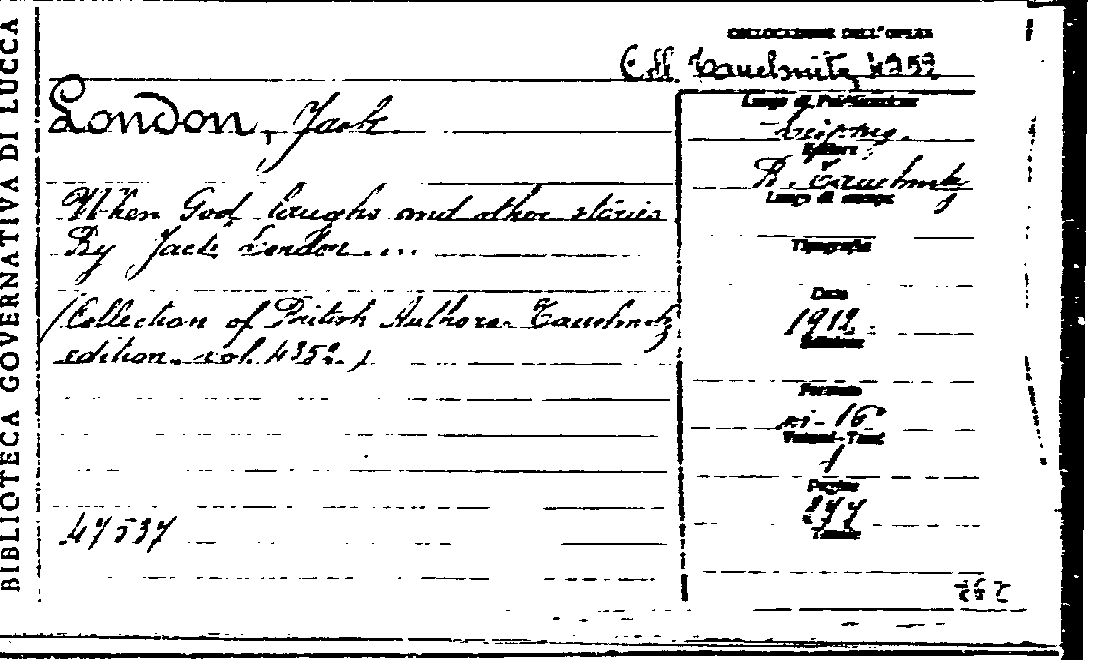 BIBLIOTECA GOVERNATIVA DI LUCCA
COLLOCAZIONE DELL'OPERA
Coll. Tauchnitz 4352
London, Jack.
When God laughs and other stories
By Jack London ...
(Collection of British Authors. Tauchnitz
edition. vol. 4352.)
47537
Luogo di Pubblicazione
Leipzig.
Editore
B. Tauchnitz
Luogo di stampa
Tipografia
Data
1912.
Edizione
Formato
in-16°
Volumi-Tomi
1
Pagine
277
Tavole